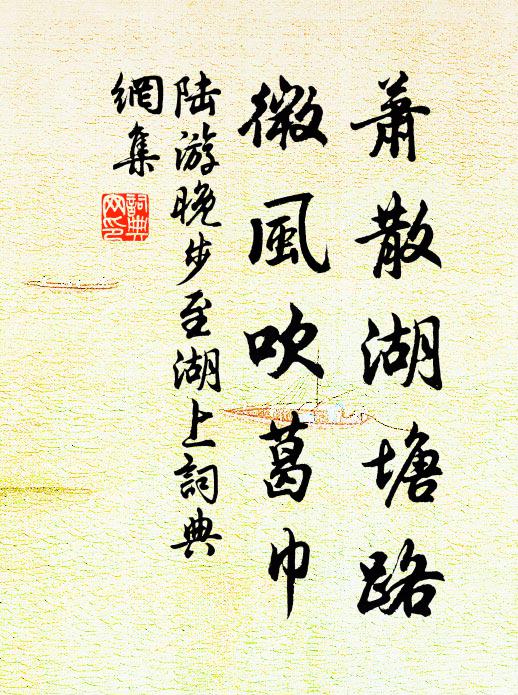 蕭散湖塘路
微風吹葛巾
陸游晚步至湖上詞典
網集
詞典
网印